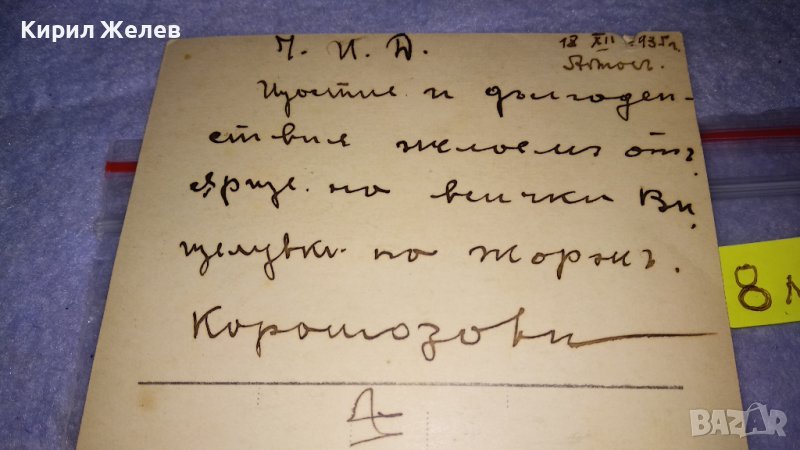 Кирил Желев
Ч. И. Д.
18 XII 935 г.
Щастие и дългоден-
ствие желаемъ отъ
сърце на всички Ви.
целувки на Жоржъ.
Карамозови
8
BAZAR